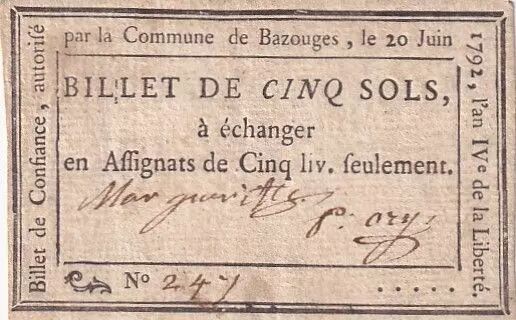 Billet de Confiance, autorisé
par la Commune de Bazouges, le 20 Juin
1792, l'an IVe de la Liberté.
BILLET DE CINQ SOLS,
à échanger
en Aſſignats de Cinq liv. ſeulement.
Margueritte
P. ory
No 247 .....